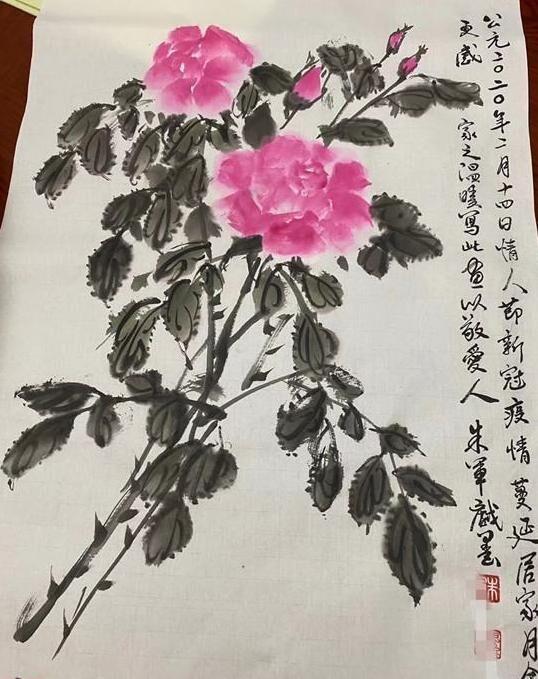 公元二〇二〇年二月十四日情人節新冠疫情蔓延居家月余
更感 家之温暖寫此画以敬愛人 朱軍戲墨
朱